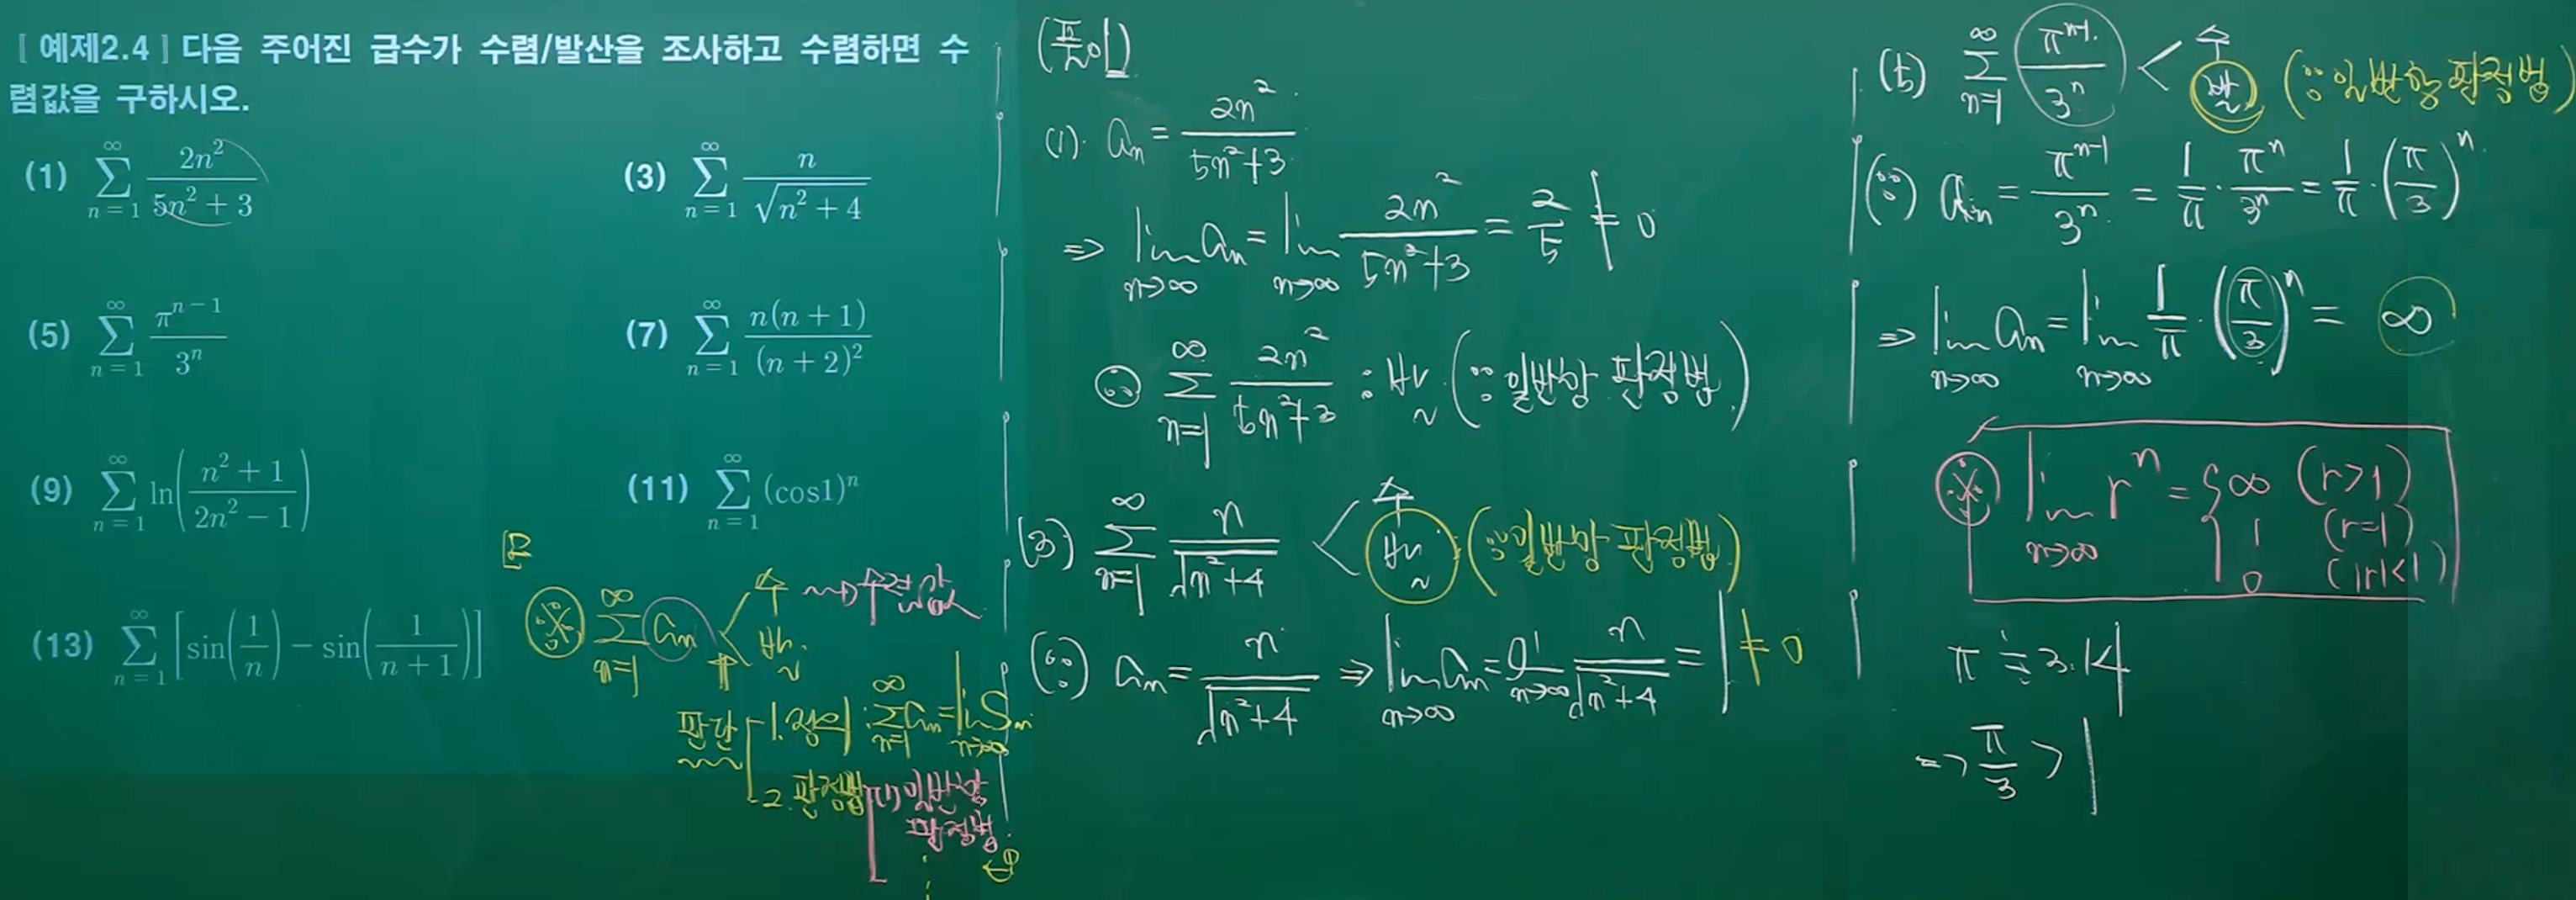 [ 예제2.4 ] 다음 주어진 급수가 수렴/발산을 조사하고 수렴하면 수
렴값을 구하시오.
(1) \sum_{n=1}^{\infty} \frac{2n^2}{5n^2+3}
(3) \sum_{n=1}^{\infty} \frac{n}{\sqrt{n^2+4}}
(5) \sum_{n=1}^{\infty} \frac{\pi^{n-1}}{3^n}
(7) \sum_{n=1}^{\infty} \frac{n(n+1)}{(n+2)^2}
(9) \sum_{n=1}^{\infty} \ln\left(\frac{n^2+1}{2n^2-1}\right)
(11) \sum_{n=1}^{\infty} (\cos 1)^n
(13) \sum_{n=1}^{\infty} \left[\sin\left(\frac{1}{n}\right) - \sin\left(\frac{1}{n+1}\right)\right]
※ \sum_{n=1}^{\infty} a_n < 수 → 수렴값
발
판단 1. 정의 : \sum_{n=1}^{\infty} a_n = \lim_{n→∞} S_n
2. 판정법 (1) 일반항
판정법
(풀이)
(1). a_n = \frac{2n^2}{5n^2+3}
⇒ \lim_{n→∞} a_n = \lim_{n→∞} \frac{2n^2}{5n^2+3} = \frac{2}{5} ≠ 0
∴ \sum_{n=1}^{\infty} \frac{2n^2}{5n^2+3} : 발 (∵ 일반항 판정법)
(3) \sum_{n=1}^{\infty} \frac{n}{\sqrt{n^2+4}} < 수
발 (∵ 일반항 판정법)
(∵) a_n = \frac{n}{\sqrt{n^2+4}} ⇒ \lim_{n→∞} a_n = \lim_{n→∞} \frac{n}{\sqrt{n^2+4}} = 1 ≠ 0
(5) \sum_{n=1}^{\infty} \frac{\pi^{n-1}}{3^n} < 수
발 (∵ 일반항 판정법)
(∵) a_n = \frac{\pi^{n-1}}{3^n} = \frac{1}{\pi} · \frac{\pi^n}{3^n} = \frac{1}{\pi} · \left(\frac{\pi}{3}\right)^n
⇒ \lim_{n→∞} a_n = \lim_{n→∞} \frac{1}{\pi} · \left(\frac{\pi}{3}\right)^n = ∞
※ \lim_{n→∞} r^n = { ∞ (r>1)
1 (r=1)
0 (|r|<1)
π ≒ 3.14
⇒ \frac{\pi}{3} > 1